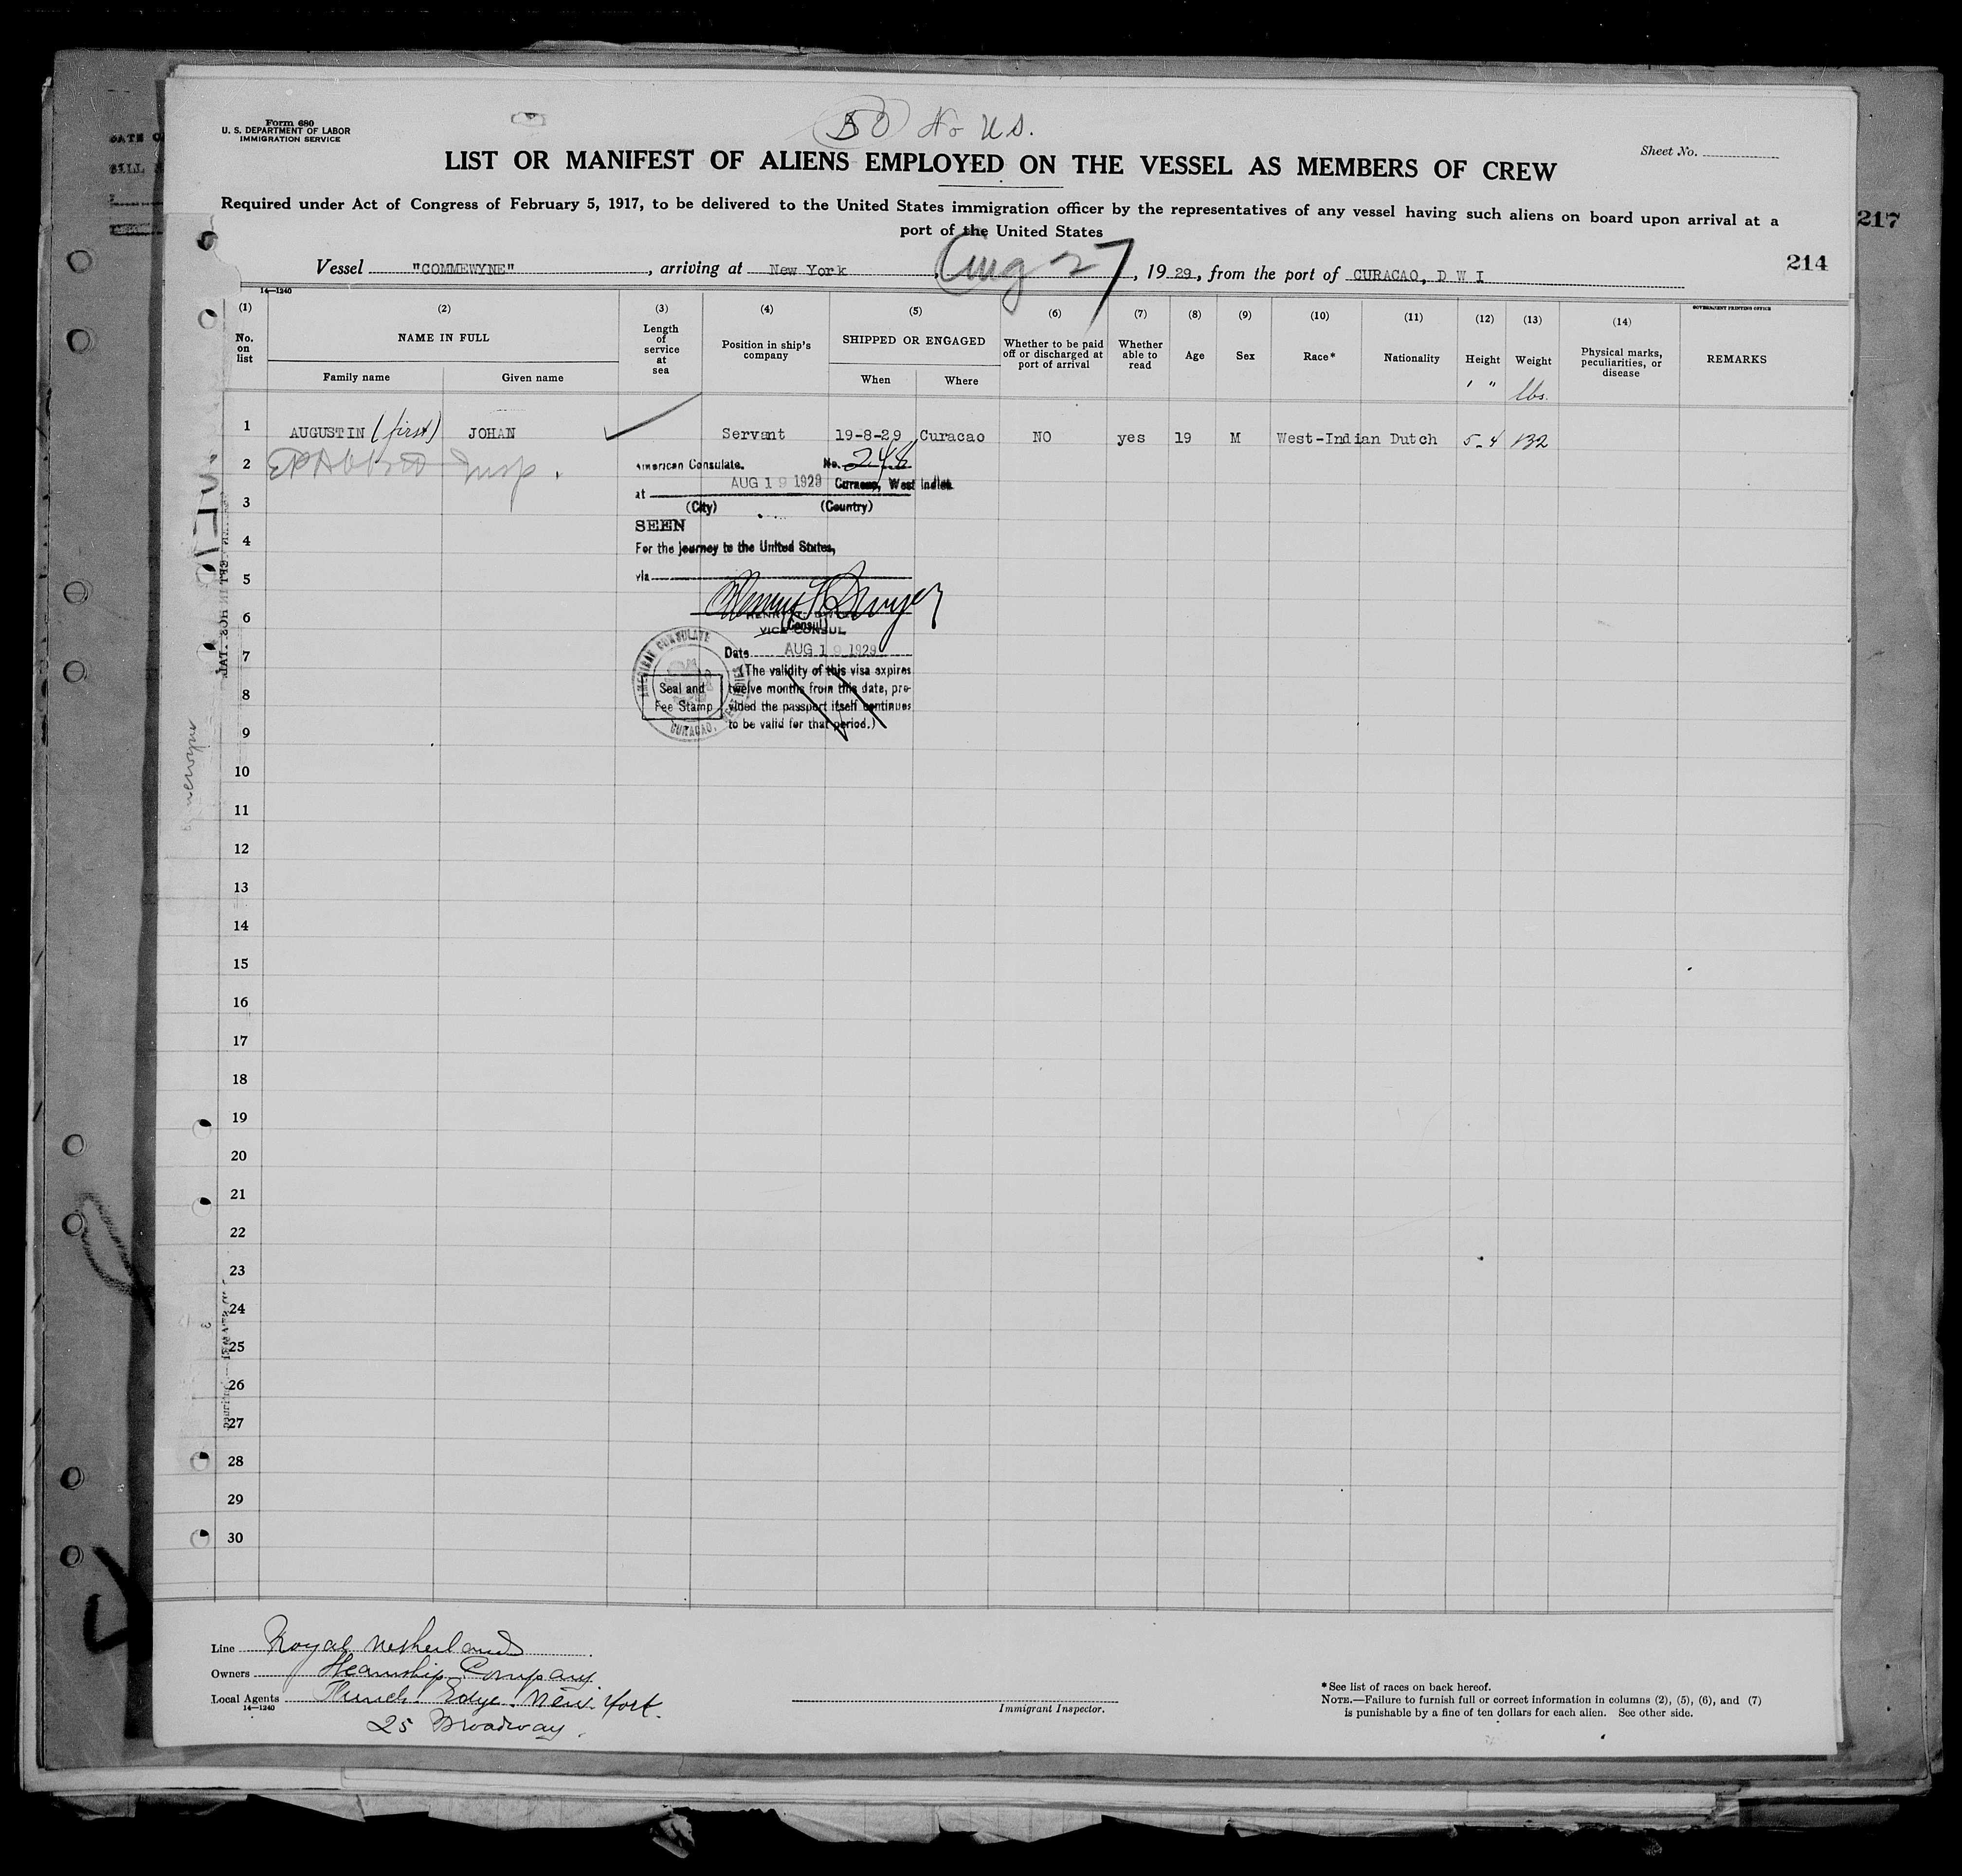 Form 680
U. S. DEPARTMENT OF LABOR
IMMIGRATION SERVICE
50 No U.S.
Sheet No.
LIST OR MANIFEST OF ALIENS EMPLOYED ON THE VESSEL AS MEMBERS OF CREW
Required under Act of Congress of February 5, 1917, to be delivered to the United States immigration officer by the representatives of any vessel having such aliens on board upon arrival at a
port of the United States
217
Vessel "COMMEWYNE", arriving at New York, Aug 27, 1929, from the port of CURACAO, D W I
214
14—1240
GOVERNMENT PRINTING OFFICE
(1) (2) (3) (4) (5) (6) (7) (8) (9) (10) (11) (12) (13) (14)
No. on list
NAME IN FULL
Family name
Given name
Length of service at sea
Position in ship's company
SHIPPED OR ENGAGED
When
Where
Whether to be paid off or discharged at port of arrival
Whether able to read
Age
Sex
Race*
Nationality
Height
Weight
Physical marks, peculiarities, or disease
REMARKS
' " lbs.
1 AUGUSTIN (first) JOHAN Servant 19-8-29 Curacao NO yes 19 M West-Indian Dutch 5-4 132
2 Insp.
American Consulate. No. 248
AUG 19 1929 Curacao, West Indies
3 at
(City) (Country)
SEEN
4 For the journey to the United States,
5 via
6
(Consul)
VICE CONSUL
7 Date AUG 19 1929
AMERICAN CONSULATE
CURACAO, WEST INDIES
Seal and
Fee Stamp
(The validity of this visa expires
8 twelve months from this date, pro-
vided the passport itself continues
9 to be valid for that period.)
10
11
12
13
14
15
16
17
18
19
20
21
22
23
24
25
26
27
28
29
30
Line Royal Netherlands
Owners Steamship Company
Local Agents Funch Edye New York.
14—1240
25 Broadway.
Immigrant Inspector.
* See list of races on back hereof.
NOTE.—Failure to furnish full or correct information in columns (2), (5), (6), and (7)
is punishable by a fine of ten dollars for each alien. See other side.